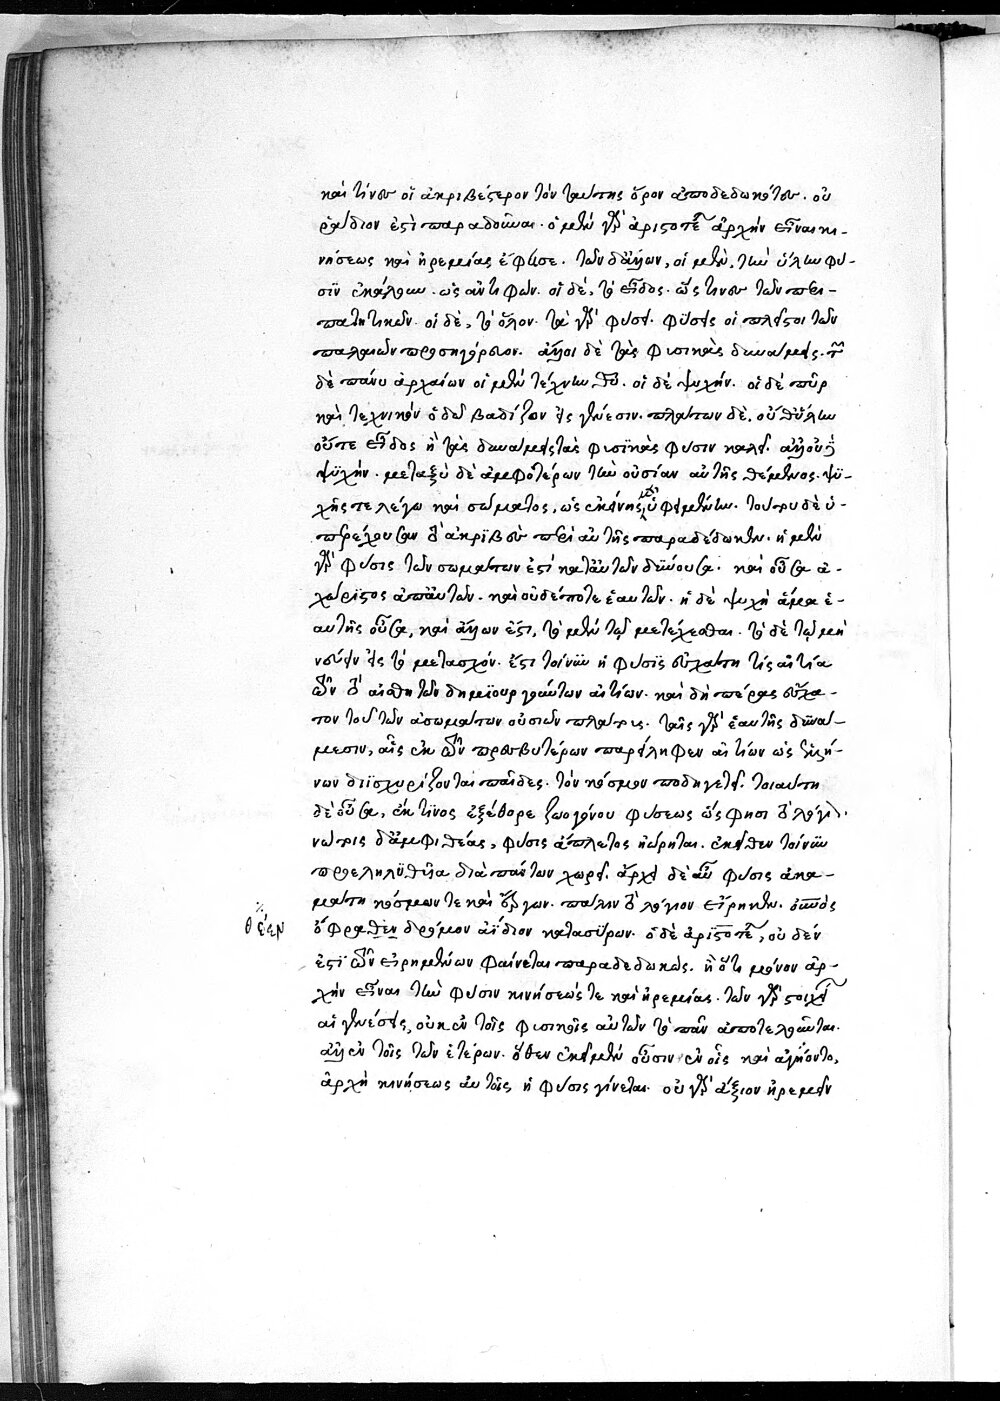 καὶ τίνων οἱ ἀκριβέστερον τὸν ταύτης ὅρον ἀποδεδωκότων. οὐ
ῥάδιον ἐστὶ παραδοῦναι. ὁ μὲν γὰρ ἀριστοτέλης ἀρχὴν εἶναι κι-
νήσεως καὶ ἠρεμίας ἔφησε. τῶν δ' ἄλλων, οἱ μὲν, τὴν ὕλην φύ-
σιν ἐκάλουν. ὡς ἀντιφῶν. οἱ δὲ, τὸ εἶδος. ὥς τινες τῶν περι-
πατητικῶν. οἱ δὲ, τὸ ὅλον. τὰ γὰρ φύσει φύσεις οἱ πλεῖστοι τῶν
παλαιῶν προσηγόρευον. ἄλλοι δὲ τὰς φυσικὰς δυνάμεις. τῶν
δὲ πάνυ ἀρχαίων οἱ μὲν τέχνην θεοῦ. οἱ δὲ ψυχήν. οἱ δὲ πῦρ
καὶ τεχνικὸν ὁδῷ βαδίζον εἰς γένεσιν. πλάτων δὲ, οὔθ' ὕλην
οὔτε εἶδος ἢ τὰς δυνάμεις τὰς φυσικὰς φύσιν καλεῖ. ἀλλ' οὐδὲ
ψυχήν. μεταξὺ δὲ ἀμφοτέρων τὴν οὐσίαν αὐτῆς θέμενος. ψυ-
χῆς τε λέγω καὶ σώματος, ὡς ἐκείνης μὲν ὑφειμένην. τούτου δὲ ὑ-
περέχουσαν τὸ ἀκριβὲς περὶ αὐτῆς παραδέδωκεν. ἡ μὲν
γὰρ φύσις τῶν σωμάτων ἐστὶ κατ' αὐτῶν δύνουσα. καὶ οὖσα ἀ-
χώριστος ἀπ' αὐτῶν. καὶ οὐδέποτε ἑαυτῶν. ἡ δὲ ψυχὴ ἅμα ἑ-
αυτῆς οὖσα, καὶ ἄλλων ἐστὶ, τὸ μὲν τῷ μετέχεσθαι. τὸ δὲ τῷ μὴ
νεύειν εἰς τὸ μετασχόν. ἔστι τοίνυν ἡ φύσις ἐσχάτη τίς αἰτία
τῶν τὸ αἰσθητῶν δημιουργούντων αἰτίων. καὶ δὴ πέρας ἔσχα-
τον τοῦ τῶν ἀσωμάτων οὐσιῶν πλάτους. ταῖς γὰρ ἑαυτῆς δυνά-
μεσιν, αἷς ἐκ τῶν πρεσβυτέρων παρείληφεν αἰτίων ὡς ἑλλή-
νων διϊσχυρίζονται παῖδες. τὸν κόσμον ποδηγετεῖ. τοιαύτη
δὲ οὖσα, ἐκ τίνος ἐξέθορε ζωογόνου φύσεως ὥς φησι τὸ λόγιον.
νώτοις δ' ἀμφὶ θεᾶς, φύσις ἄπλετος ᾐώρηται. ἐκεῖθεν τοίνυν
προεληλυθυῖα διὰ πάντων χωρεῖ. ἄρχει δὲ αὖ φύσις ἀκα-
μάτη κόσμων τε καὶ ἔργων. πάλιν τὸ λόγιον εἴρηκεν. οὐρανὸς
ὄφρα θεν δρόμον ἀΐδιον κατασύρων. ὁ δὲ ἀριστοτέλης, οὐδὲν
θέειν
ἐστὶ τῶν εἰρημένων φαίνεται παραδεδωκώς. ἢ ὅτι μόνον ἀρ-
χὴν εἶναι τὴν φύσιν κινήσεώς τε καὶ ἠρεμίας. τῶν γὰρ στοιχείων
αἱ γενέσεις, οὐκ ἐν τοῖς φυσικοῖς αὐτῶν τὸ πᾶν ἀποτελοῦνται.
ἀλλ' ἐν τοῖς τῶν ἑτέρων. ὅθεν ἐκεῖ μὲν οὖσιν ἐν οἷς καὶ
ἀρχὴ κινήσεως αὐτοῖς ἡ φύσις γίνεται. οὐ γὰρ ἄξιον ἠρεμεῖν